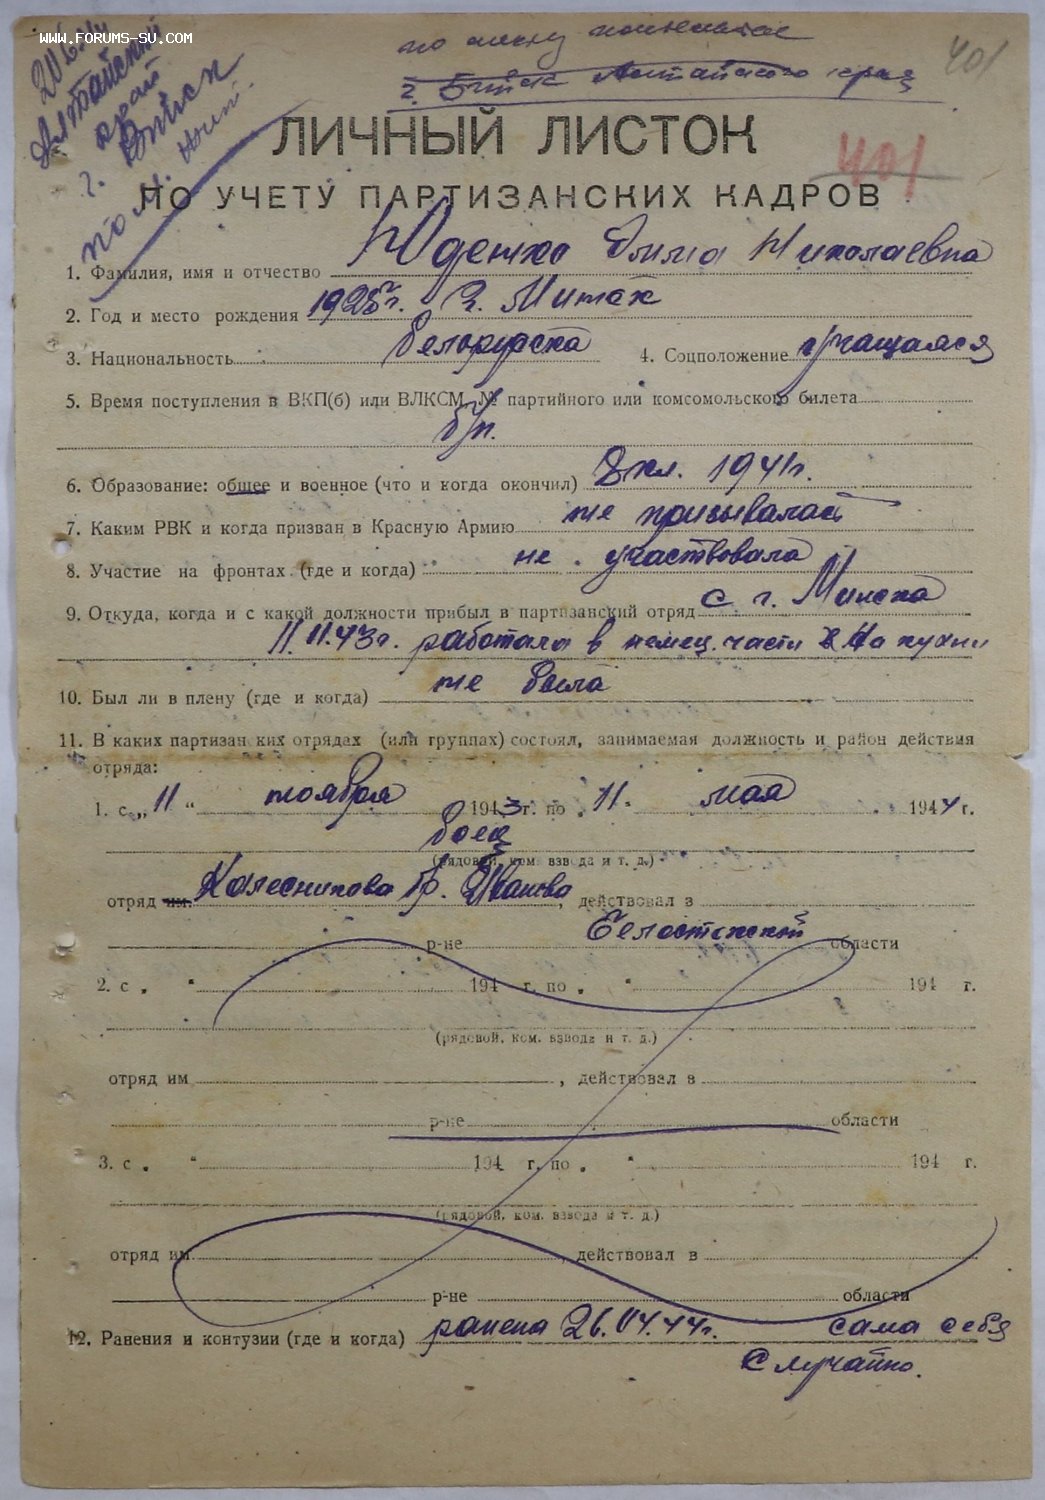 www.forums-su.com
401
по месту жительства
г. Бийск Алтайского края
Алтайский
край
г. Бийск
401
ЛИЧНЫЙ ЛИСТОК
ПО УЧЕТУ ПАРТИЗАНСКИХ КАДРОВ
1. Фамилия, имя и отчество Юденко Николаевна
2. Год и место рождения г. Минск
3. Национальность белоруска 4. Соцположение учащаяся
5. Время поступления в ВКП(б) или ВЛКСМ, № партийного или комсомольского билета
б/п.
6. Образование: общее и военное (что и когда окончил) 8 кл. 1941 г.
7. Каким РВК и когда призван в Красную Армию не призывалась
8. Участие на фронтах (где и когда) не участвовала
9. Откуда, когда и с какой должности прибыл в партизанский отряд с г. Минска
11.11.43 г. работала в немец. части на кухни
10. Был ли в плену (где и когда) не была
11. В каких партизан ких отрядах (или группах) состоял, занимаемая должность и район действия
отряда:
1. с „ 11 “ ноября 1943 г. по „ 11. мая 1944 г.
боец
(рядовой, ком. взвода и т. д.)
отряд им. Колесникова бр. Иванова, действовал в
р-не Белостокской области
2. с „ “ 194 г. по „ “ 194 г.
(рядовой, ком. взвода и т. д.)
отряд им , действовал в
р-не области
3. с „ “ 194 г. по „ “ 194 г.
(рядовой, ком. взвода и т. д.)
отряд им , действовал в
р-не области
12. Ранения и контузии (где и когда) ранена 26.04.44 г. сама себя
случайно.